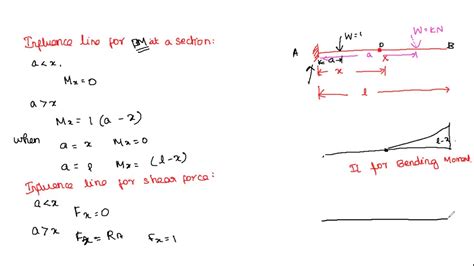 Influence line for BM at a section:
a<x,
Mx=0
a>x
Mx = 1 (a-x)
when a = x Mx=0
a = l Mx = (l-x)
Influence line for shear force:
a<x
Fx=0
a>x Fx = RA Fx=1
W=1
W=kN
A
D
B
a
a
x
x
l
l-x
IL for Bending Moment